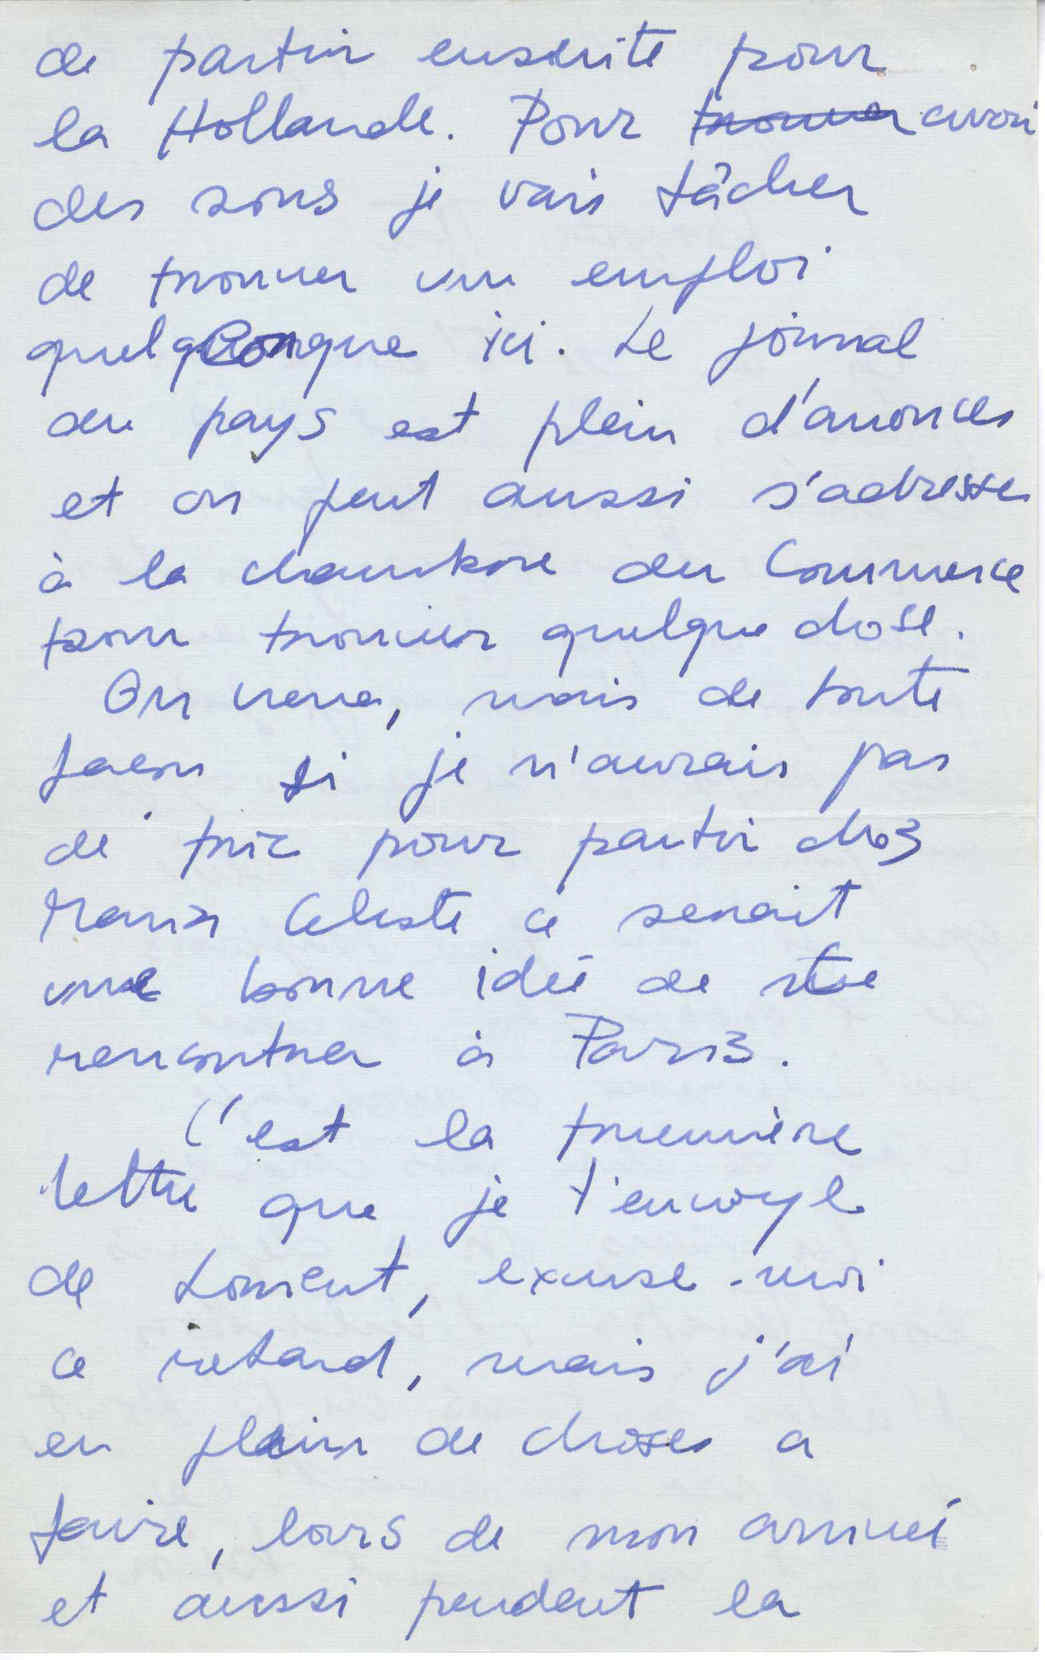 de partir ensuite pour
la Hollande. Pour trouver avoir
des sous je vais tâcher
de trouver un emploi
quelqconque ici. Le journal
du pays est plein d'anonces
et on peut aussi s'adresser
à la chambre du Commerce
pour trouver quelque chose.
On verra, mais de toute
façon si je n'aurais pas
de fric pour partir chez
Maria Celeste ce serait
une bonne idée de se
rencontrer à Paris.
C'est la première
lettre que je t'envoye
de Lorient, excuse-moi
ce retard, mais j'ai
eu plein de choses a
faire, lors de mon arrivé
et aussi pendent la